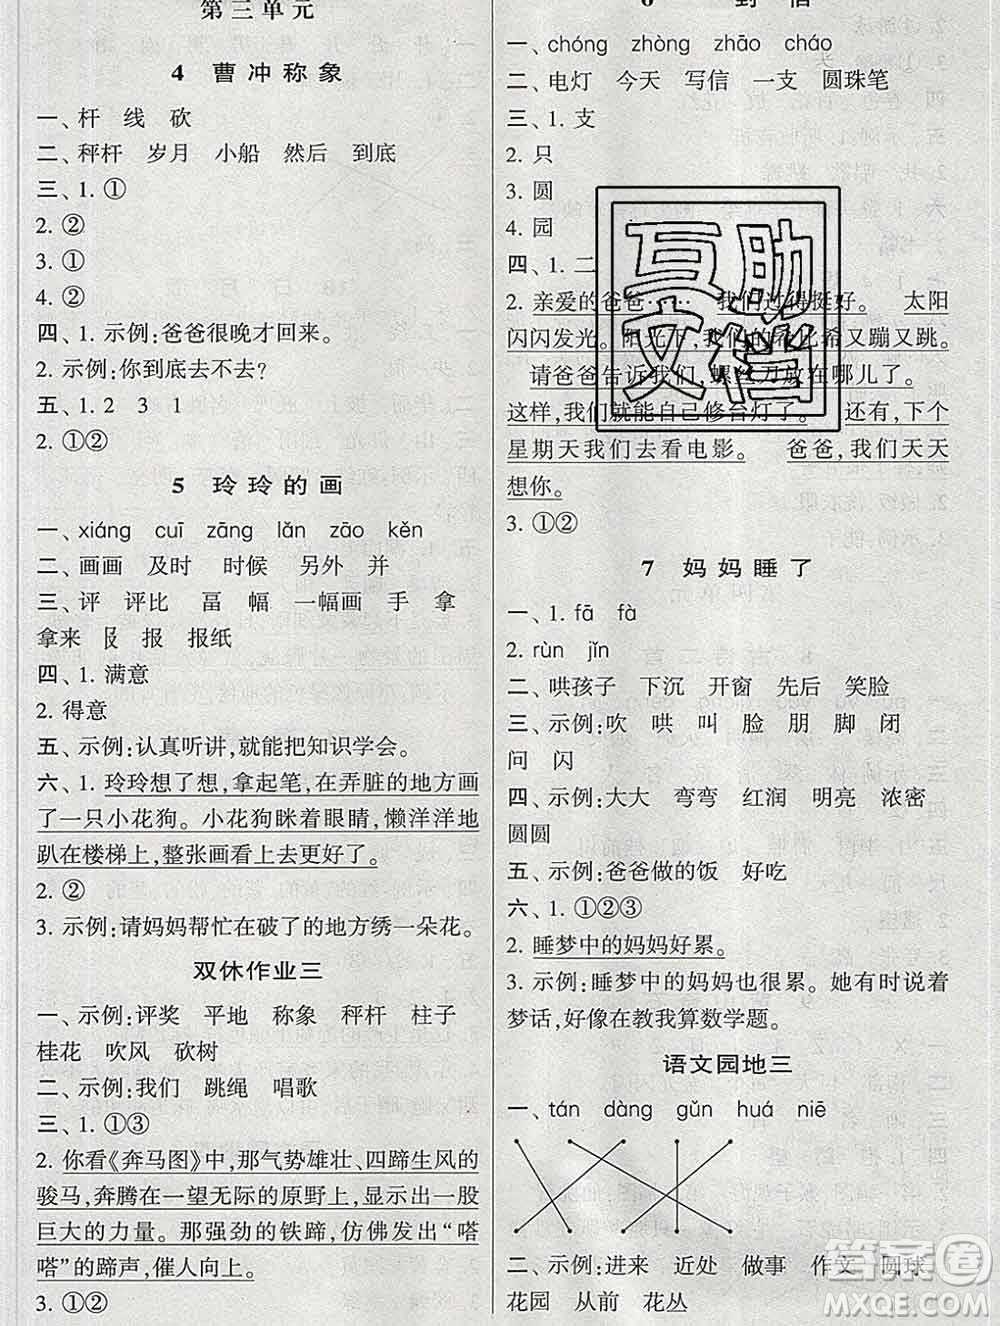 第三单元
4 曹冲称象
一、杆 线 砍
二、秤杆 岁月 小船 然后 到底
三、1. ①
2. ②
3. ①
4. ②
四、1. 示例:爸爸很晚才回来。
2. 示例:你到底去不去?
五、1. 2 3 1
2. ①②
5 玲玲的画
一、xiáng cuī zāng lǎn zāo kěn
二、画画 及时 时候 另外 并
三、评 评比 畐 幅 一幅画 手 拿
拿来 𠬝 报 报纸
四、1. 满意
2. 得意
五、示例:认真听讲,就能把知识学会。
六、1. 玲玲想了想,拿起笔,在弄脏的地方画
了一只小花狗。小花狗眯着眼睛,懒洋洋地
趴在楼梯上,整张画看上去更好了。
2. ②
3. 示例:请妈妈帮忙在破了的地方绣一朵花。
双休作业三
一、示例:评奖 平地 称象 秤杆 柱子
桂花 吹风 砍树
二、示例:我们 跳绳 唱歌
三、1. ①③
2. 你看《奔马图》中,那气势雄壮、四蹄生风的
骏马,奔腾在一望无际的原野上,显示出一股
巨大的力量。那强劲的铁蹄,仿佛发出“嗒
嗒”的蹄声,催人向上。
3. ①②
一、chóng zhòng zhāo cháo
二、电灯 今天 写信 一支 圆珠笔
三、1. 支
2. 只
3. 圆
4. 园
四、1. 二
2. 亲爱的爸爸…… 我们过得挺好。 太阳
闪闪发光。阳光下,我们的希比希又蹦又跳。
请爸爸告诉我们,螺丝刀放在哪儿了。
这样,我们就能自己修台灯了。 还有,下个
星期天我们去看电影。 爸爸,我们天天
想你。
3. ①②
7 妈妈睡了
一、1. fā fà
2. rùn jǐn
二、哄孩子 下沉 开窗 先后 笑脸
三、示例:吹 哄 叫 脸 朋 脚 闭
问 闪
四、示例:大大 弯弯 红润 明亮 浓密
圆圆
五、示例:爸爸做的饭 好吃
六、1. ①②③
2. 睡梦中的妈妈好累。
3. 示例:睡梦中的妈妈也很累。她有时说着
梦话,好像在教我算数学题。
语文园地三
一、tán dàng gǔn huá niē
二、示例:进来 近处 做事 作文 圆球
花园 从前 花丛
互助
文档
答案圈
MXQE.COM